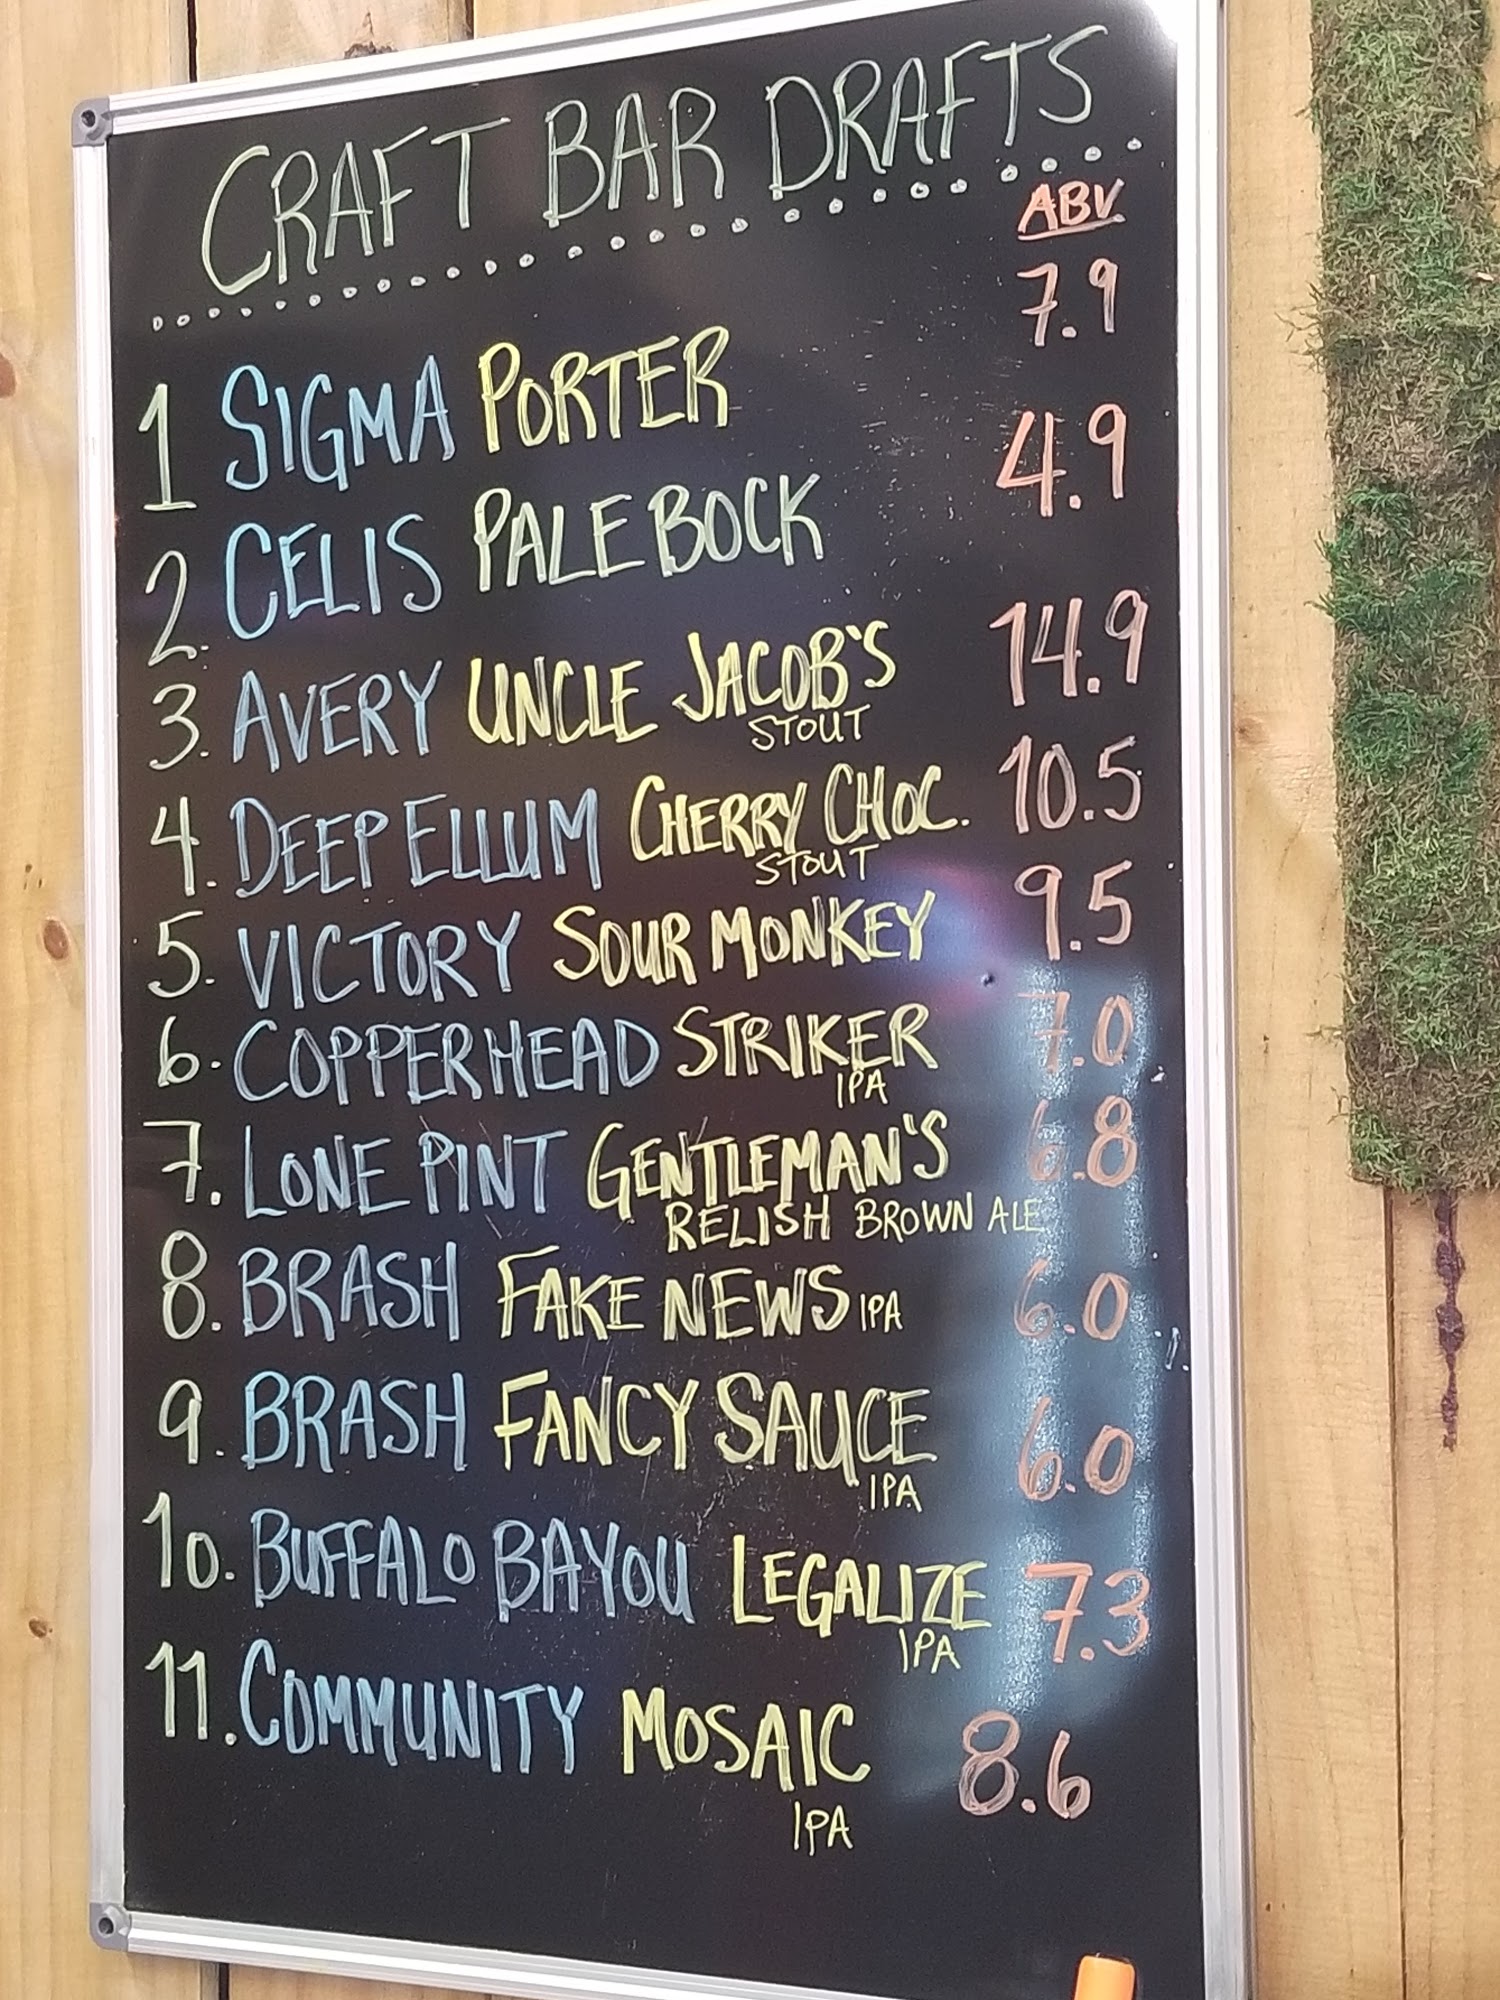 CRAFT BAR DRAFTS
ABV
1 SIGMA PORTER 7.9
2. CELIS PALE BOCK 4.9
3. AVERY UNCLE JACOB'S 14.9
STOUT
4. DEEP ELLUM CHERRY CHOC. 10.5
STOUT
5. VICTORY SOUR MONKEY 9.5
6. COPPERHEAD STRIKER 7.0
IPA
7. LONE PINT GENTLEMAN'S 6.8
RELISH BROWN ALE
8. BRASH FAKE NEWS IPA 6.0
9. BRASH FANCY SAUCE 6.0
IPA
10. BUFFALO BAYOU LEGALIZE 7.3
IPA
11. COMMUNITY MOSAIC 8.6
IPA